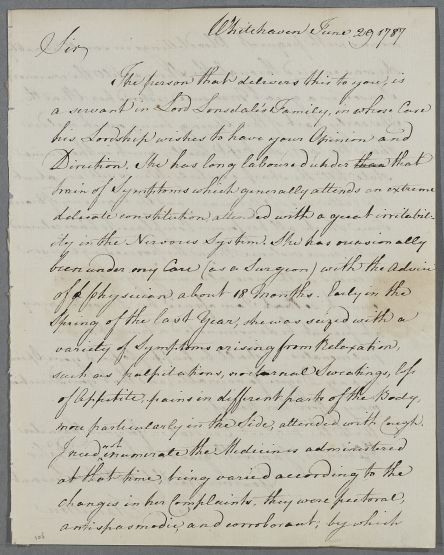 Whitehaven June 29 1787
Sir
The person that delivers this to you, is
a servant in Lord Lonsdale's Family, in whose Case
his Lordship wishes to have your Opinion and
Direction, She has long laboured under than that
train of Symptoms which generally attends an extreme
delicate constitution, attended with a great irritabil-
ity in the Nervous System. She has occasionally
been under my Care (as a Surgeon) with the Advice
of a physician about 18 months. Early in the
Spring of the last Year, she was seized with a
variety of Symptoms arising from Relaxation,
such as palpitations, nocturnal Sweatings, loss
of Appetite, pains in different parts of the Body,
more particularly in the Side, attended with Cough.
I need not enumerate the Medicines administered
at that time, being varied according to the
changes in her Complaints, they were pectoral,
antispasmodic, and corroborant; by which